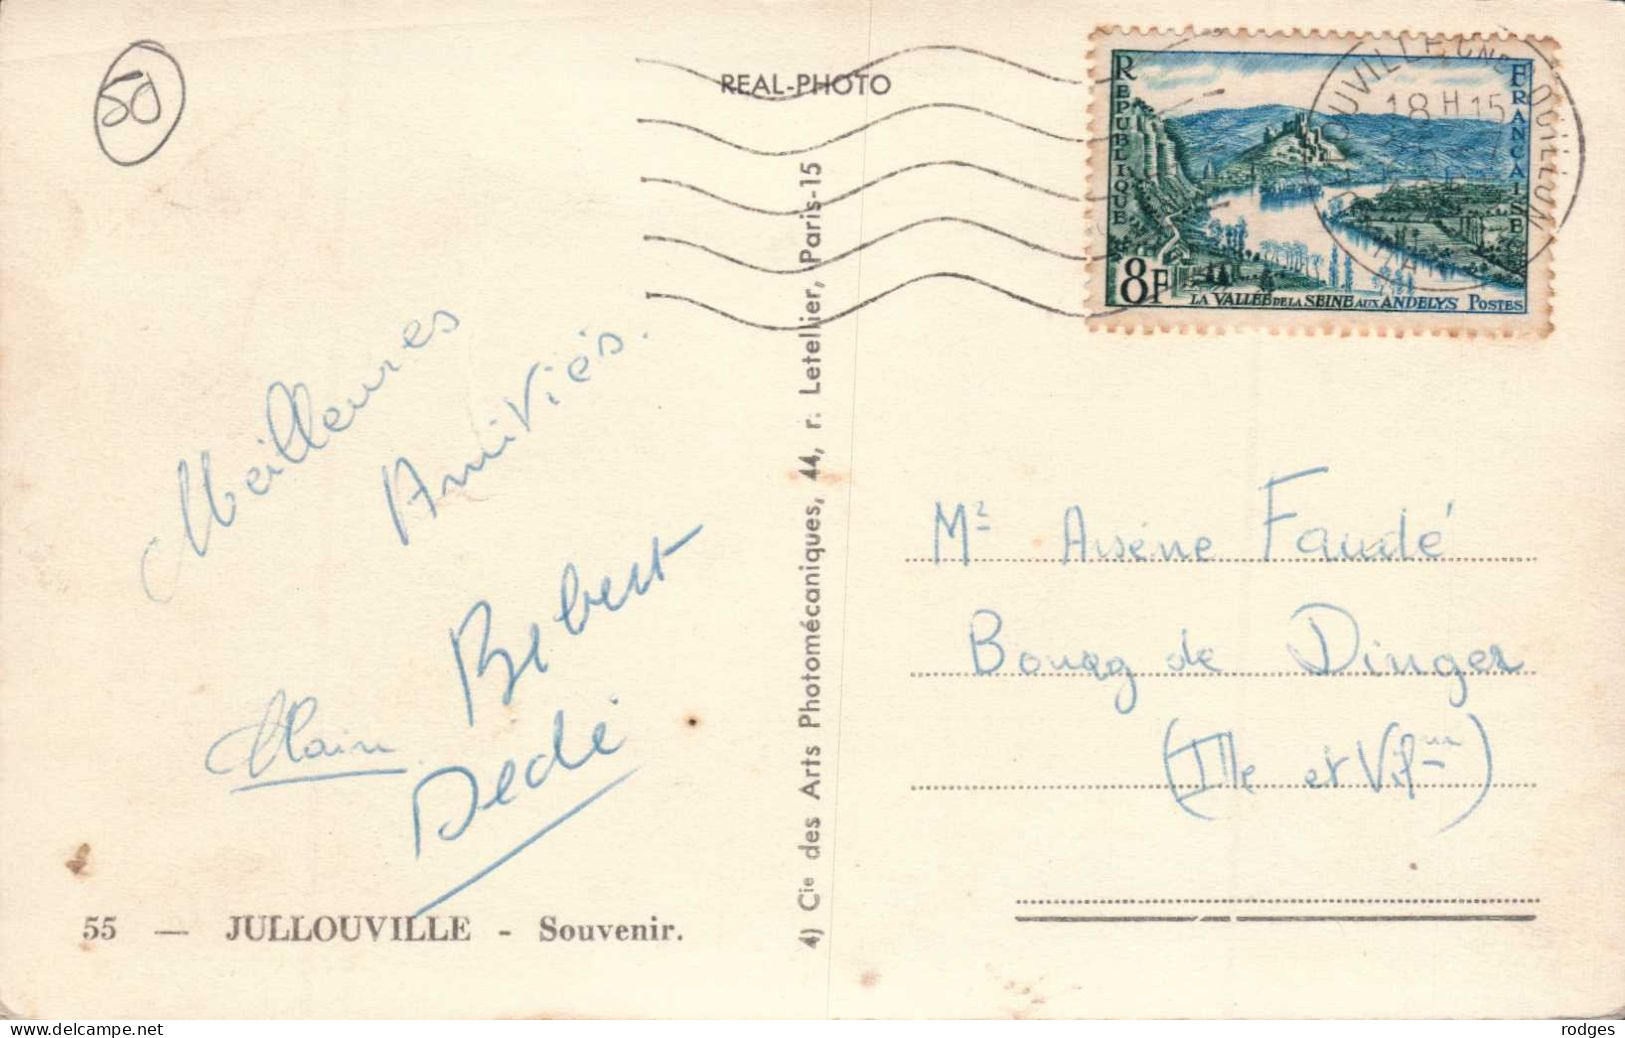 50
REAL-PHOTO
RÉPUBLIQUE
FRANÇAISE
18 H 15
8F
LA VALLÉE DE LA SEINE AUX ANDELYS POSTES
Meilleures
Amitiés.
Bebert
Alain
Dédé
55 — JULLOUVILLE - Souvenir.
4) Cie des Arts Photomécaniques, 44, r. Letellier, Paris-15
Mr Arsène Faudé
Bourg de Dinger
(Ille et Vilne)
delcampe.net
rodges